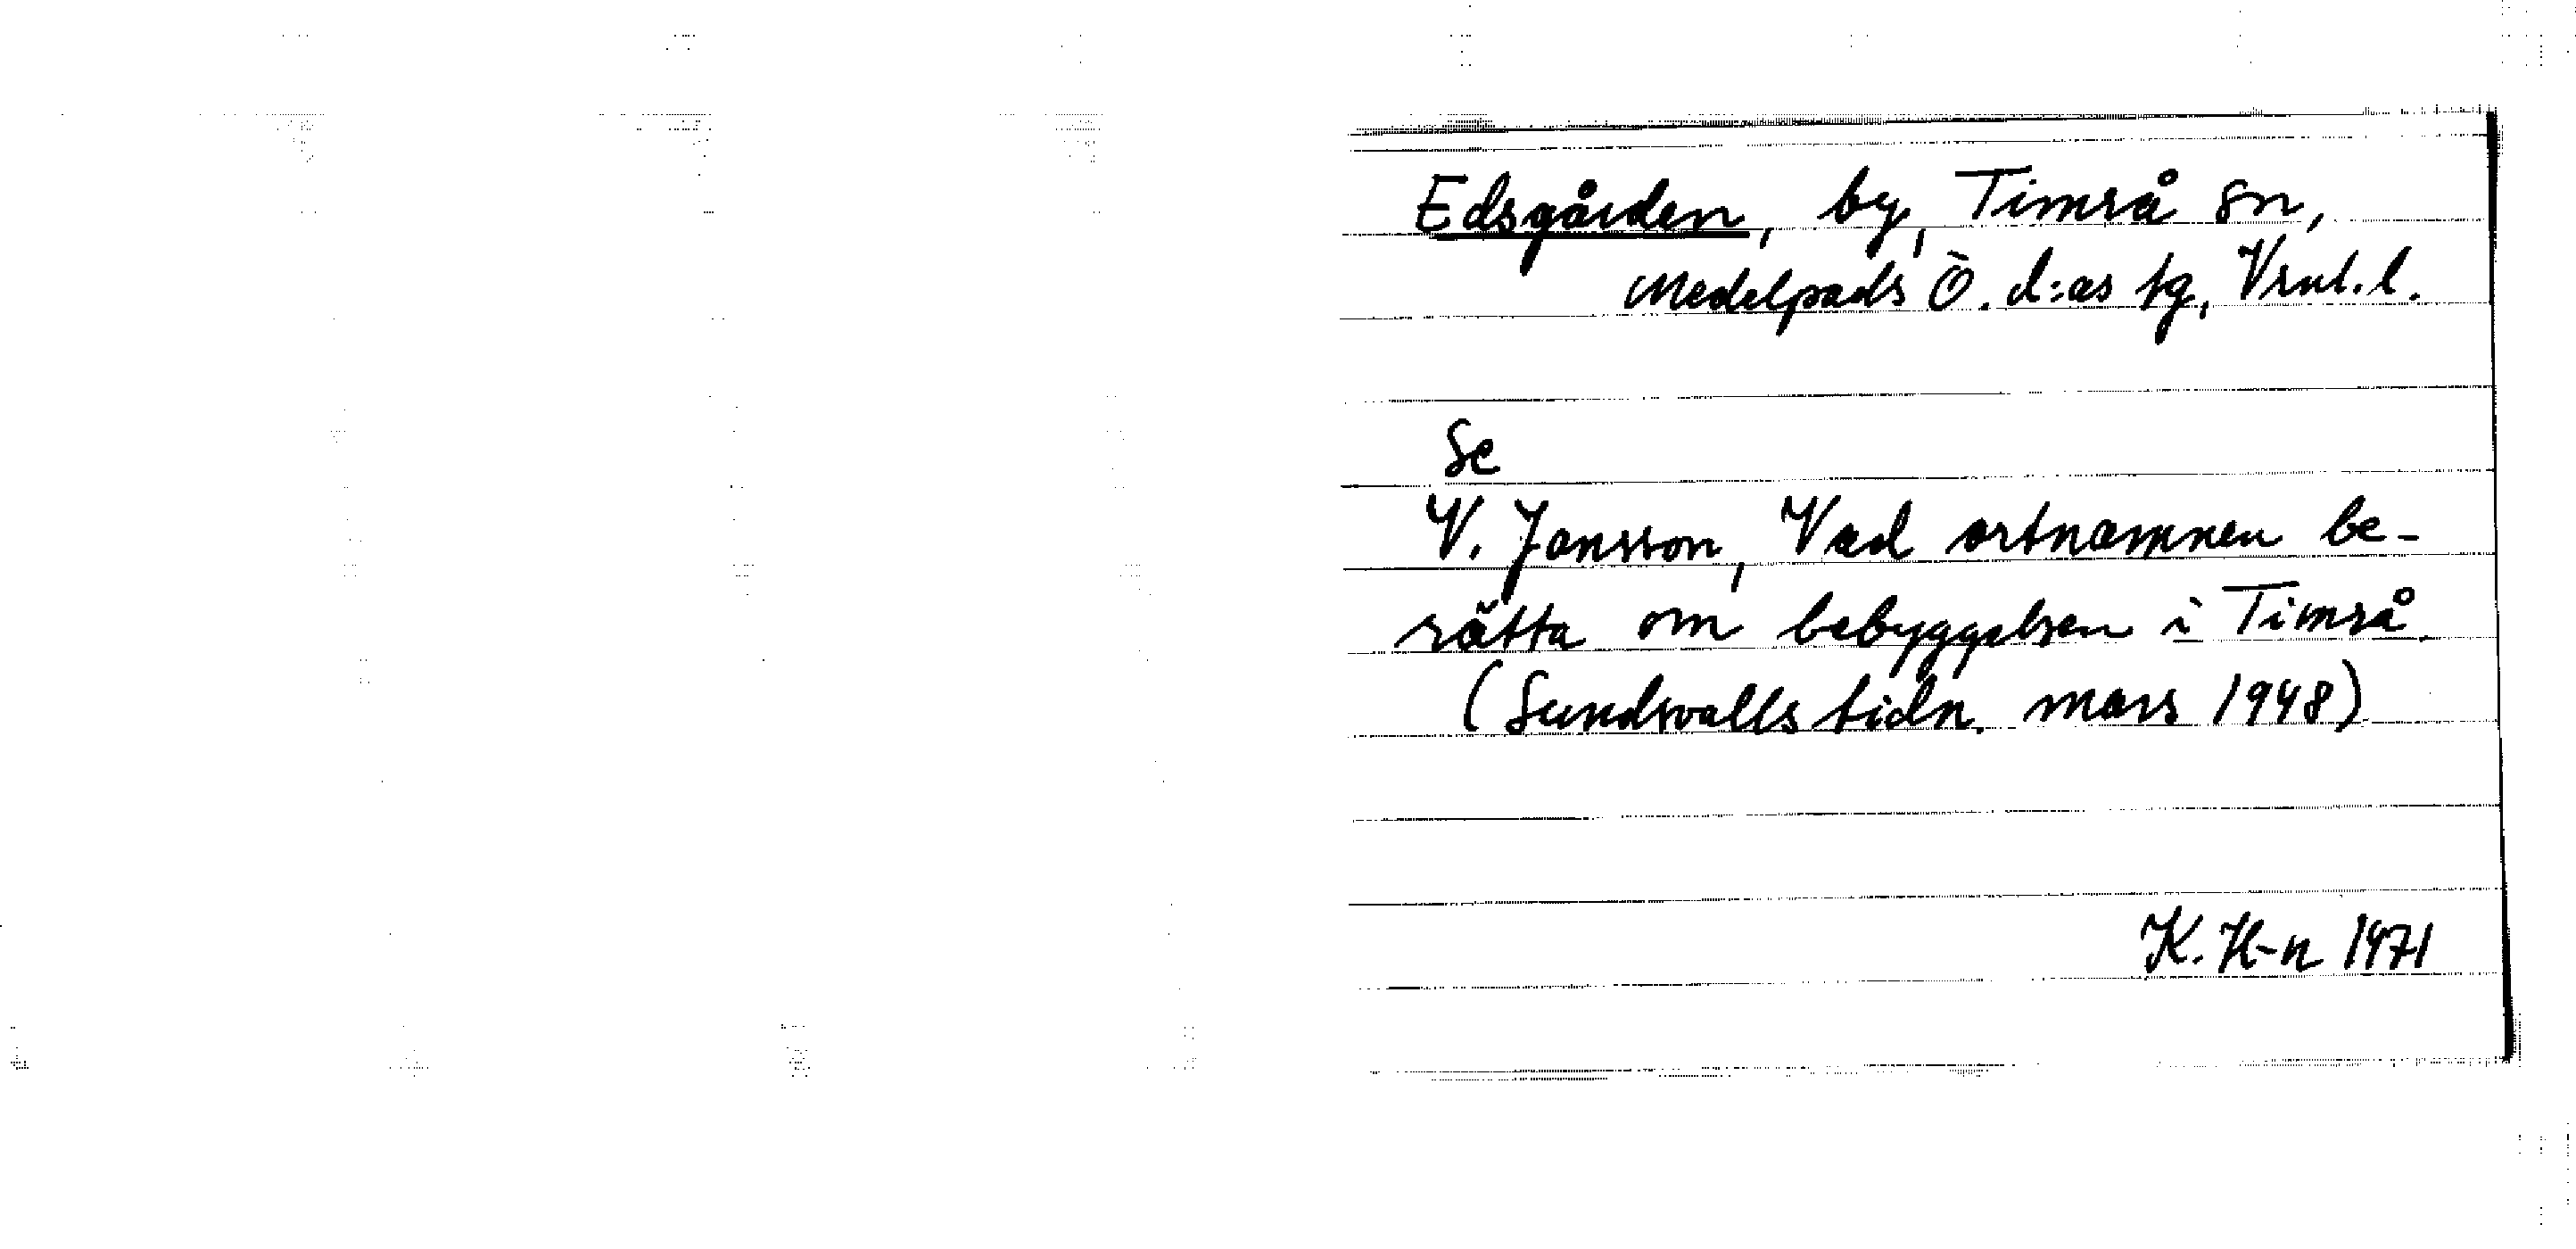 Edsgården, by, Timrå sn,
Medelpads Ö. d:as tg, Vrnl. l.
Se
V. Jansson, Vad ortnamnen be-
rätta om bebyggelsen i Timrå.
(Sundsvalls tidn. mars 1948)
K. H-n 1971